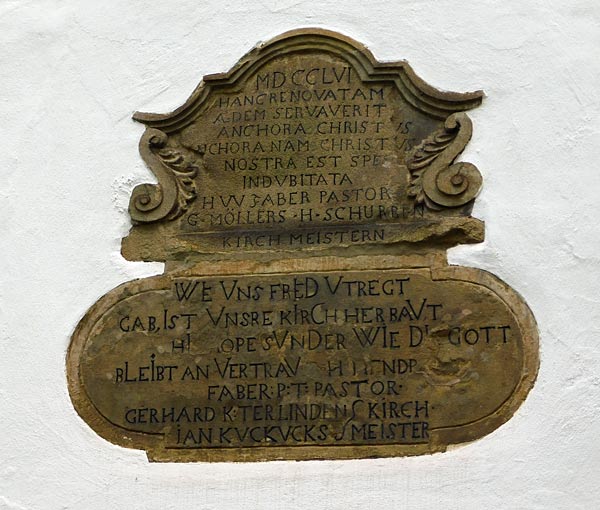 MDCCLVI
HANC RENOVATAM
ÆDEM SERVAVERIT
ANCHORA CHRISTUS
CHORA NAM CHRISTUS
NOSTRA EST SPES
INDVBITATA
FABER PASTOR
G·MÖLLERS·H·SCHURBEN
KIRCH MEISTERN
WE VNS FRED VTREGT
GAB, IST VNSRE KIRCH HERBAVT
SVNDER WIE GOTT
BLEIBT AN
FABER·P:T·PASTOR·
GERHARD K·TERLINDEN KIRCH·
IAN KVCKVCKS MEISTER